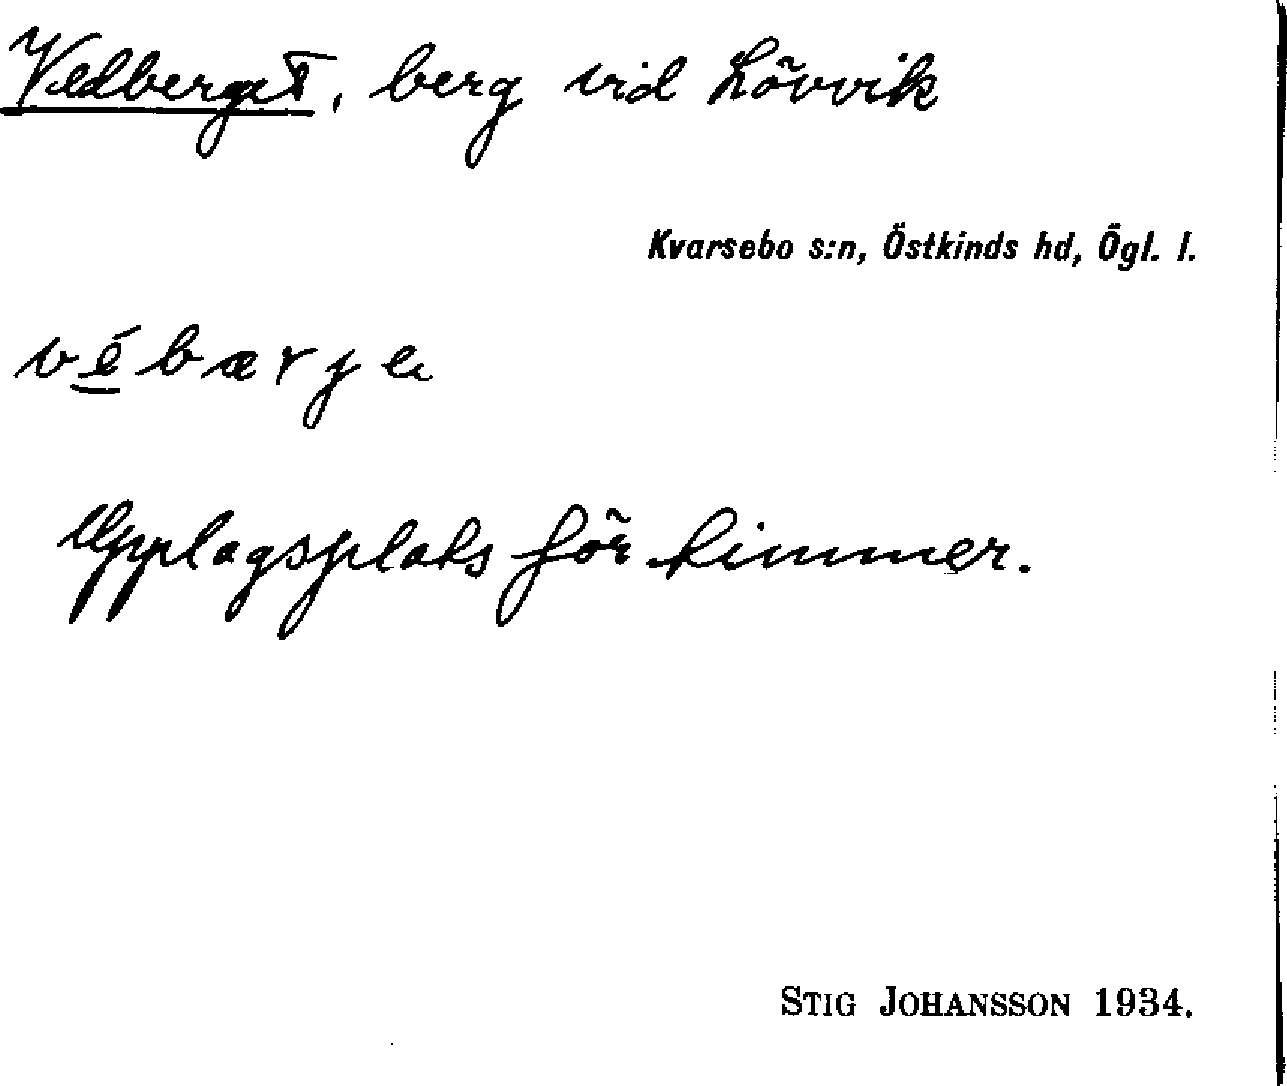 Vedberget, berg vid Lövvik
Kvarsebo s:n, Östkinds hd, Ögl. l.
vébærje
Upplagsplats för timmer.
Stig Johansson 1934.